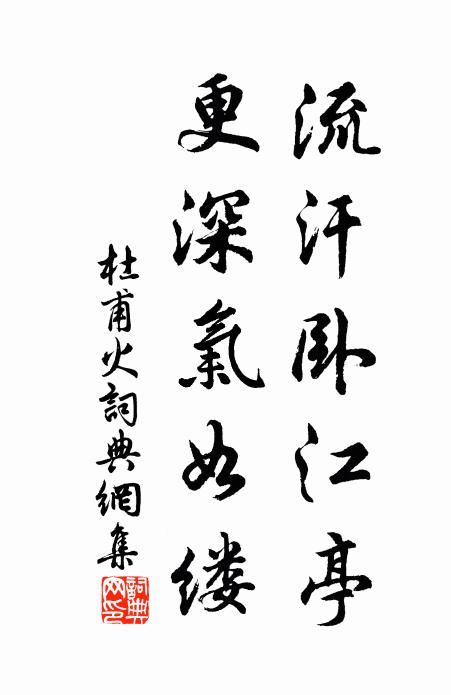 流汗卧江亭
更深氣如缕
杜甫火詞典網集
詞典网印